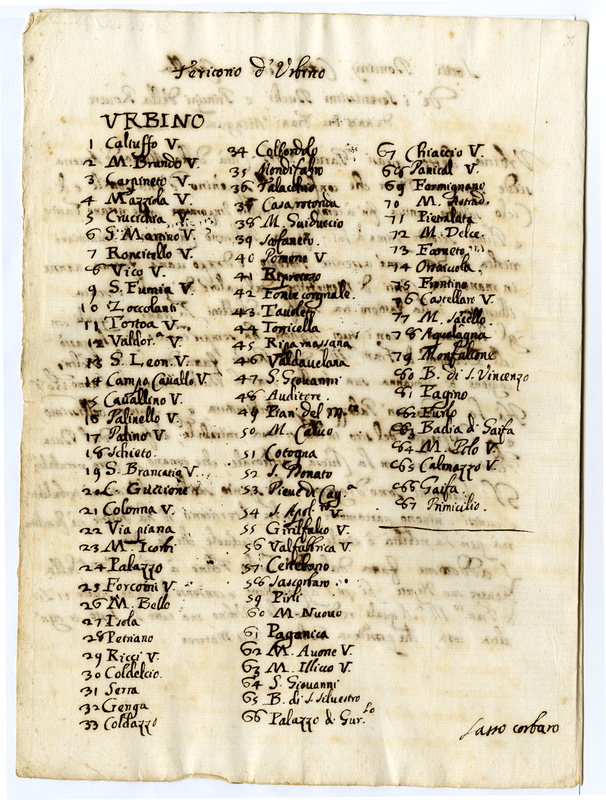 Tericonio d' Vrbino
VRBINO
1 Caliuffo V.
2 M. Brando V.
3 Carpineto V.
4 Mazziola V.
5 Crucichia V.
6 S. Martino V.
7 Roncitello V.
8 Vico V.
9 S. Fumia V.
10 Zoccolanti
11 Tortoa V.
12 Valdor.ª V.
13 S. Leon. V.
14 Campo Cavallo V.
15 Cavallino V.
16 Palinello V.
17 Palino V.
18 Schieto.
19 S. Brancatio V.
20 C. Guccione
21 Colonna V.
22 Via piana
23 M.
24 Palazzo
25 Forcoini V.
26 M. Bello
27 Isola
28 Petriano
29 Ricci V.
30 Coldelcio.
31 Serra
32 Genga
33 Coldazzo
34 Colbordolo
35 Mondifabro
36 Palacchio
37 Casa rotonda
38 M. Guiduccio
39
40 Pomone V.
41 Repretozo
42 Fonte corgnale.
43 Tauoleto
44 Torricella
45 Ripa massana
46 Valdauelana
47 S. Giouanni
48 Auditere.
49 Pian del m.te
50 M. Caluo
51 Cotogna
52 S. Donato
53 Pieue di Cag.ª
54 S. Apol.ro V.
55 Girifalco V.
56 Valfabbrica V.
57 Cerrebano.
58 Sascorbaro.
59 Pirli
60 M. Nuouo
61 Paganica
62 M. Auone V.
63 M. Illico V.
64 S. Giouanni
65 B. di S. Siluestro
66 Palazzo d. Gur.lo
67 Chiaccio V.
68 Panical V.
69 Formignano
70 M. Astrad.
71 Pietralata
72 M. Delce.
73 Farneto
74 Orsaiuola.
75 Frontino
76 Castellare V.
77 M. Sacello.
78 Aqualagna
79 Monfalcone
80 B. di S. Vincenzo
81 Pagino
82 Furlo
83 Badia d. Gaifa
84 M. Polo V.
85 Calmazzo V.
86 Gaifa.
87 Primicilio.
Sasso corbaro